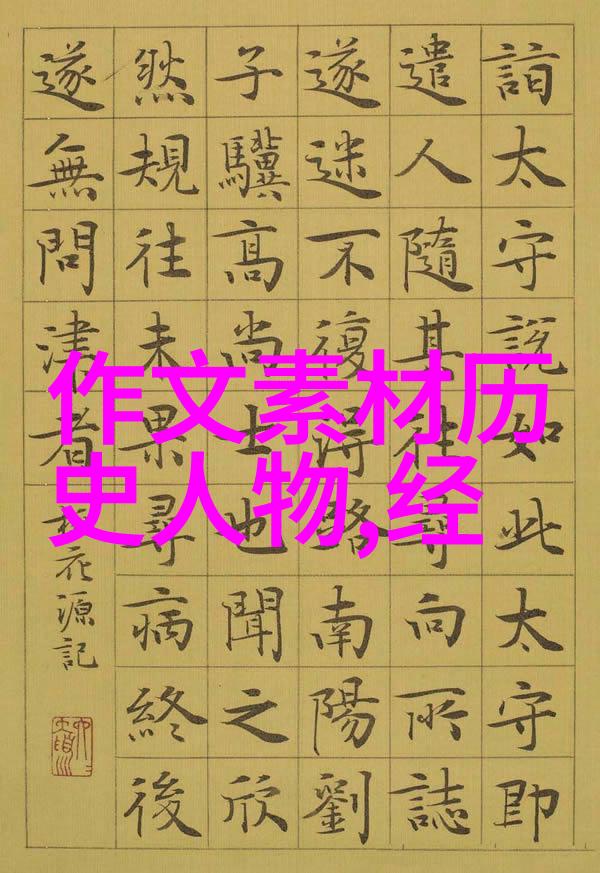 詣太守說如此太守即
遣人隨其往尋向所誌
遂迷不復得路南陽劉
子驥高尚士也聞之欣
然規往未果尋病終後
遂無問津者
桃花源記
作文素材历
史人物,经